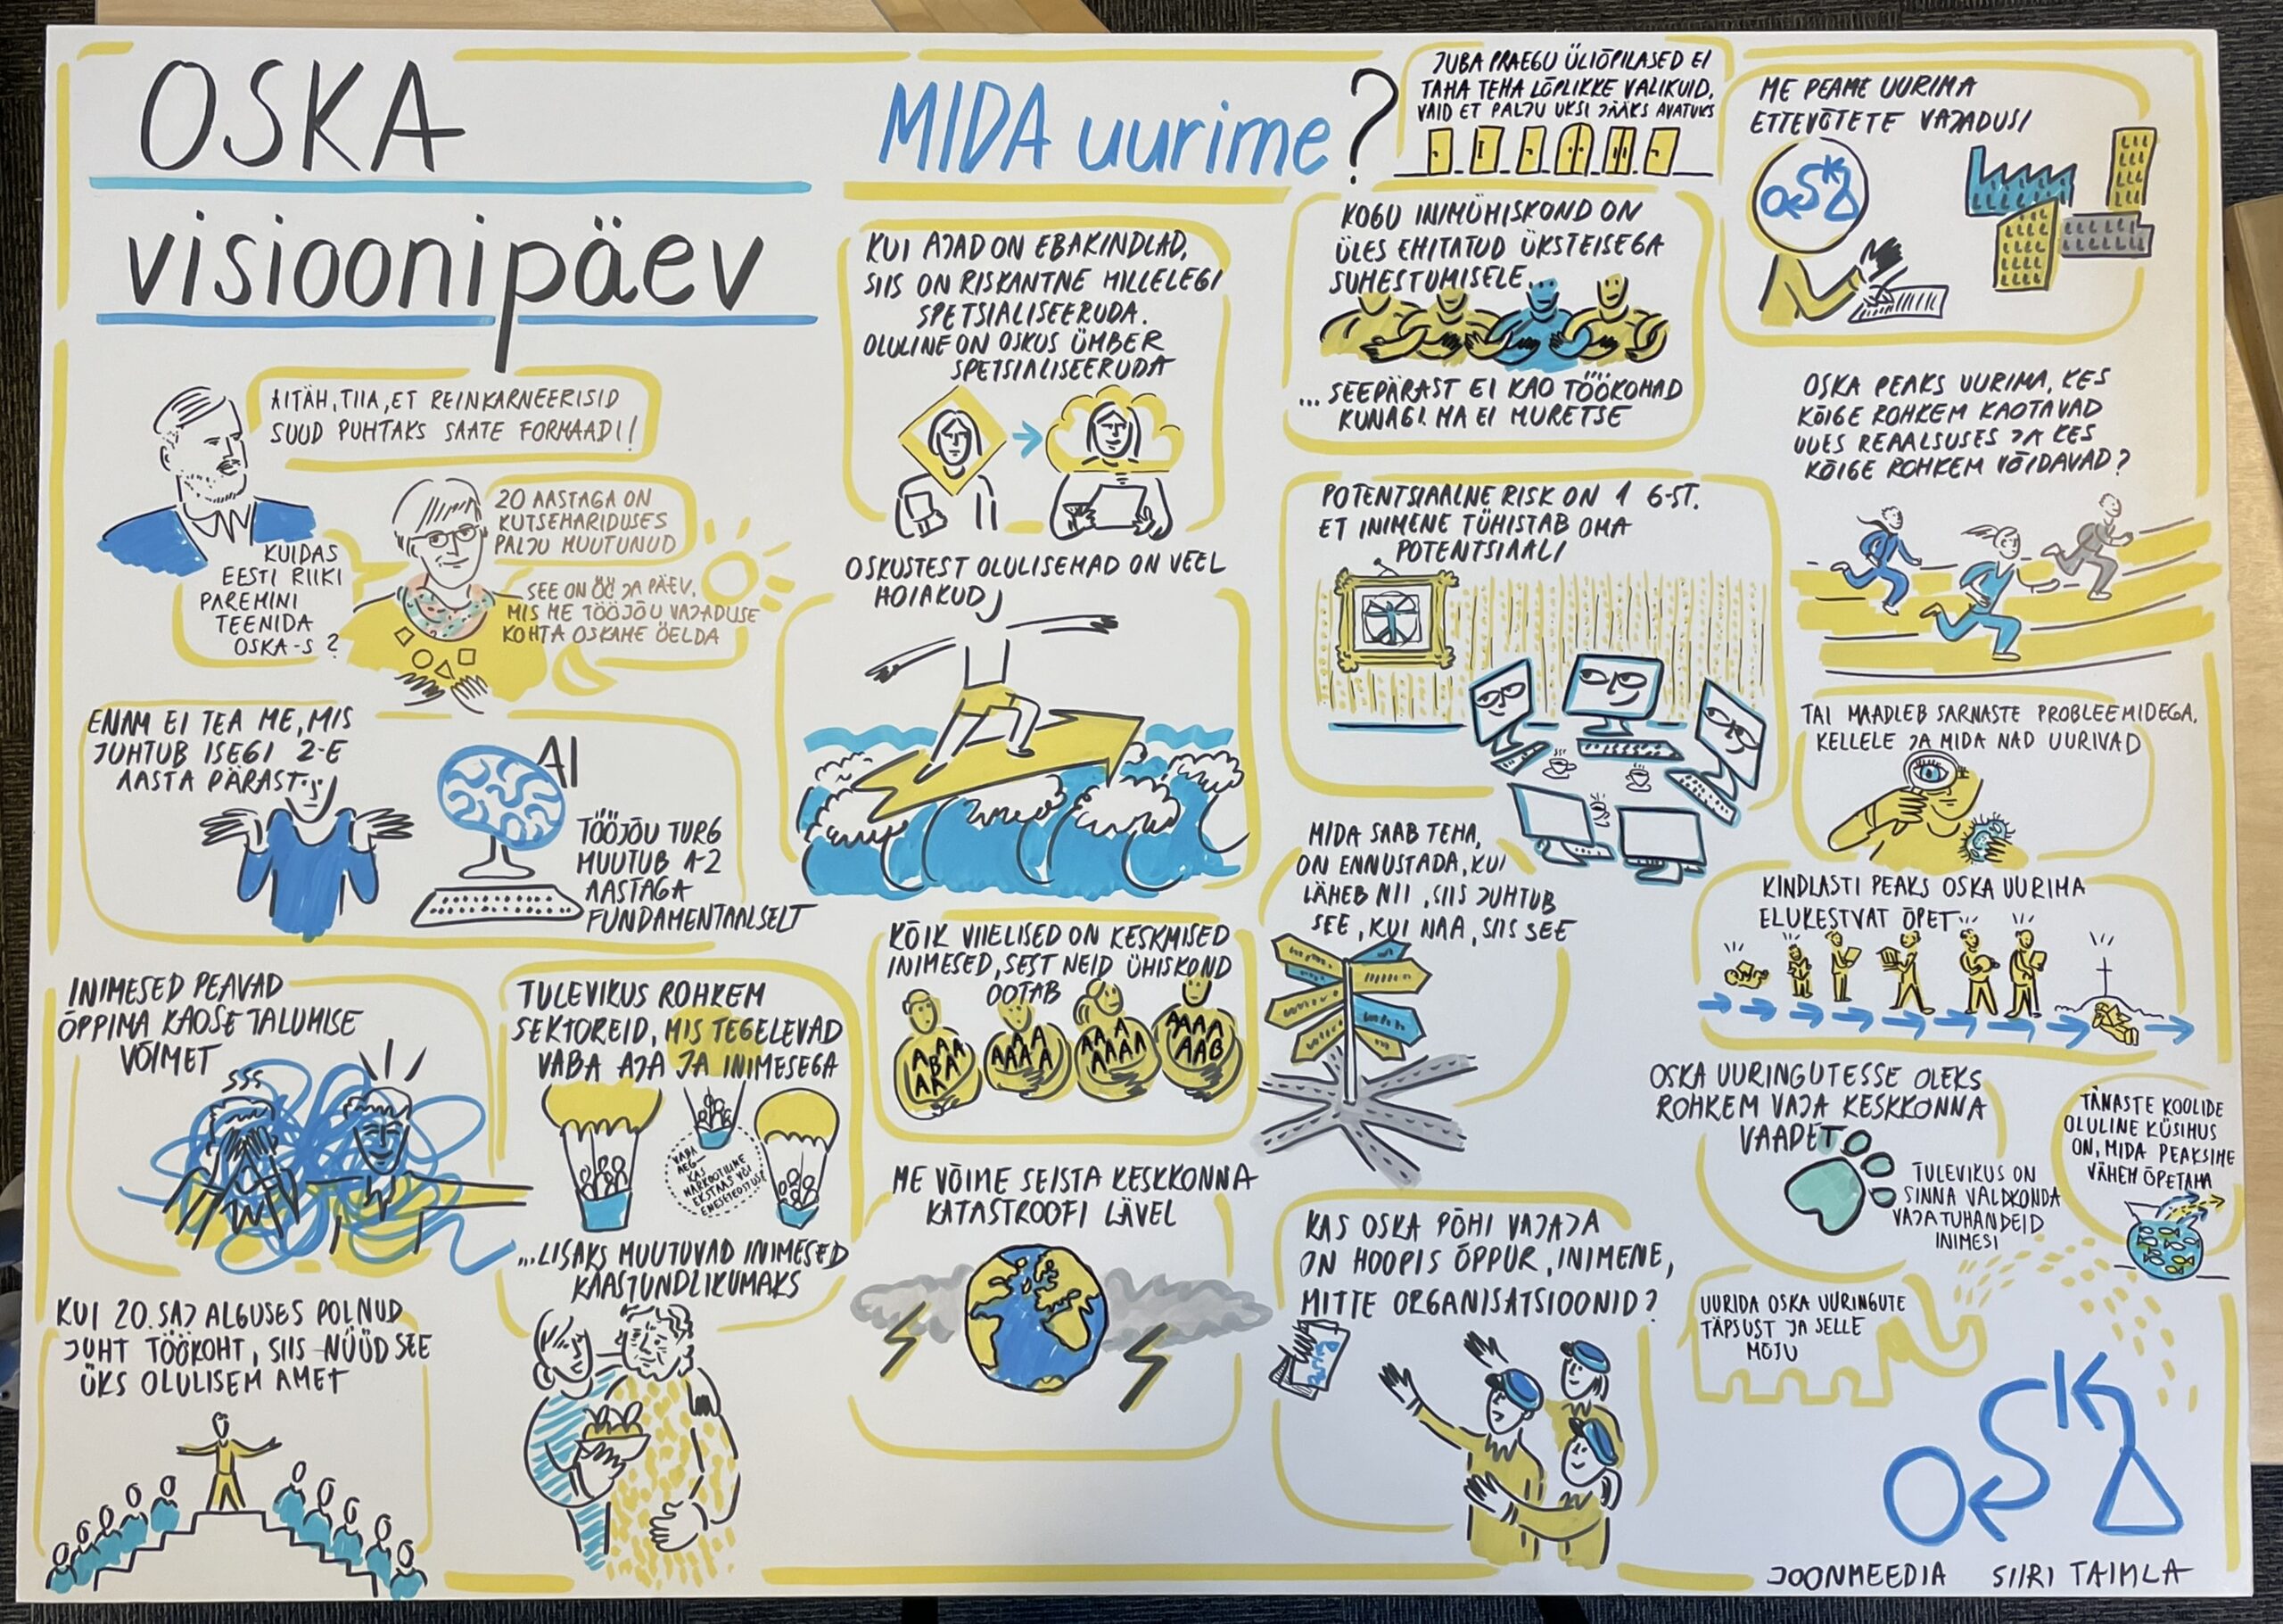 OSKA
visioonipäev
AITÄH, TIIA, ET REINKARNEERISID
SUUD PUHTAKS SAATE FORMAADI!
20 AASTAGA ON
KUTSEHARIDUSES
PALJU MUUTUNUD
KUIDAS
EESTI RIIKI
PAREMINI
TEENIDA
OSKA-S?
SEE ON ÖÖ JA PÄEV,
MIS ME TÖÖJÕU VAJADUSE
KOHTA OSKAME ÖELDA
ENAM EI TEA ME, MIS
JUHTUB ISEGI 2-E
AASTA PÄRAST
AI
TÖÖJÕU TURG
MUUTUB 1-2
AASTAGA
FUNDAMENTAALSELT
INIMESED PEAVAD
ÕPPIMA KAOSE TALUMISE
VÕIMET
TULEVIKUS ROHKEM
SEKTOREID, MIS TEGELEVAD
VABA AJA JA INIMESEGA
VABA
AEG-
KAS
NARKOOTILINE
EKSTAAS VÕI
ENESETEOSTUS?
...LISAKS MUUTUVAD INIMESED
KAASTUNDLIKUMAKS
KUI 20. SAJ ALGUSES POLNUD
JUHT TÖÖKOHT, SIIS NÜÜD SEE
ÜKS OLULISEM AMET
MIDA uurime?
KUI AJAD ON EBAKINDLAD,
SIIS ON RISKANTNE MILLELEGI
SPETSIALISEERUDA.
OLULINE ON OSKUS ÜMBER
SPETSIALISEERUDA
OSKUSTEST OLULISEMAD ON VEEL
HOIAKUD
KÕIK VIIELISED ON KESKMISED
INIMESED, SEST NEID ÜHISKOND
OOTAB
ME VÕIME SEISTA KESKKONNA
KATASTROOFI LÄVEL
JUBA PRAEGU ÜLIÕPILASED EI
TAHA TEHA LÕPLIKKE VALIKUID,
VAID ET PALJU UKSI JÄÄKS AVATUKS
KOGU INIMÜHISKOND ON
ÜLES EHITATUD ÜKSTEISEGA
SUHESTUMISELE...
...SEEPÄRAST EI KAO TÖÖKOHAD
KUNAGI. MA EI MURETSE
POTENTSIAALNE RISK ON 1 6-ST.
ET INIMENE TÜHISTAB OMA
POTENTSIAALI
MIDA SAAB TEHA,
ON ENNUSTADA, KUI
LÄHEB NII, SIIS JUHTUB
SEE, KUI NAA, SIIS SEE
KAS OSKA PÕHI VAJAJA
ON HOOPIS ÕPPUR, INIMENE,
MITTE ORGANISATSIOONID?
ME PEAME UURIMA
ETTEVÕTETE VAJADUSI
OSKA
OSKA PEAKS UURIMA, KES
KÕIGE ROHKEM KAOTAVAD
UUES REAALSUSES JA KES
KÕIGE ROHKEM VÕIDAVAD?
TAI MAADLEB SARNASTE PROBLEEMIDEGA,
KELLELE JA MIDA NAD UURIVAD
KINDLASTI PEAKS OSKA UURIMA
ELUKESTVAT ÕPET
OSKA UURINGUTESSE OLEKS
ROHKEM VAJA KESKKONNA
VAADET
TULEVIKUS ON
SINNA VALDKONDA
VAJA TUHANDEID
INIMESI
TÄNASTE KOOLIDE
OLULINE KÜSIMUS
ON, MIDA PEAKSIME
VÄHEM ÕPETAMA
UURIDA OSKA UURINGUTE
TÄPSUST JA SELLE
MÕJU
OSKA
JOONMEEDIA SIIRI TAIMLA